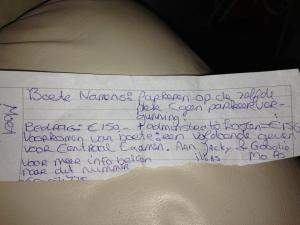 Boete Namens: Parkeren op de zelfde
plek & geen parkeerver-
gunning!
Bedrag: €150,- + administratiekosten = €156
voorkomen van boete: een voldoende geven
voor Centraal Examen. Aan Jacky &
voor meer info bellen
naar dit nummer